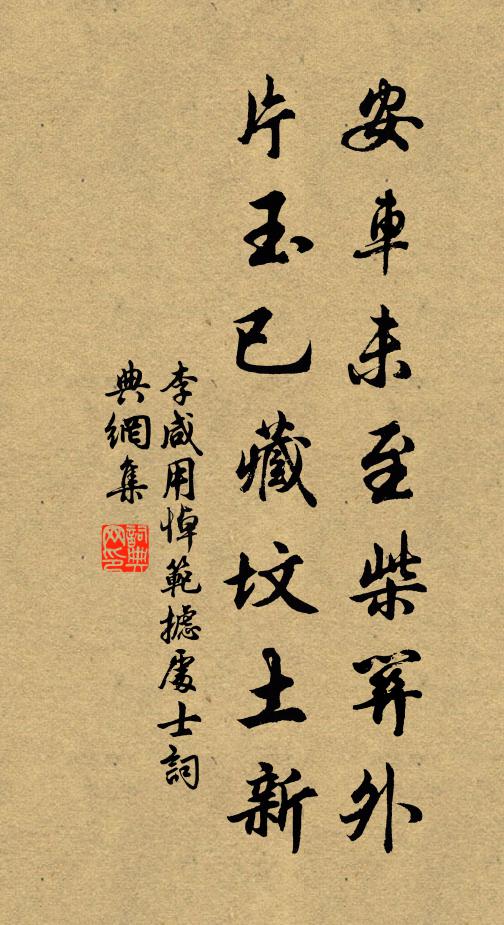 安車未至柴關外
片玉已藏墳土新
李咸用悼範攄處士詞
典網集
詞典網印